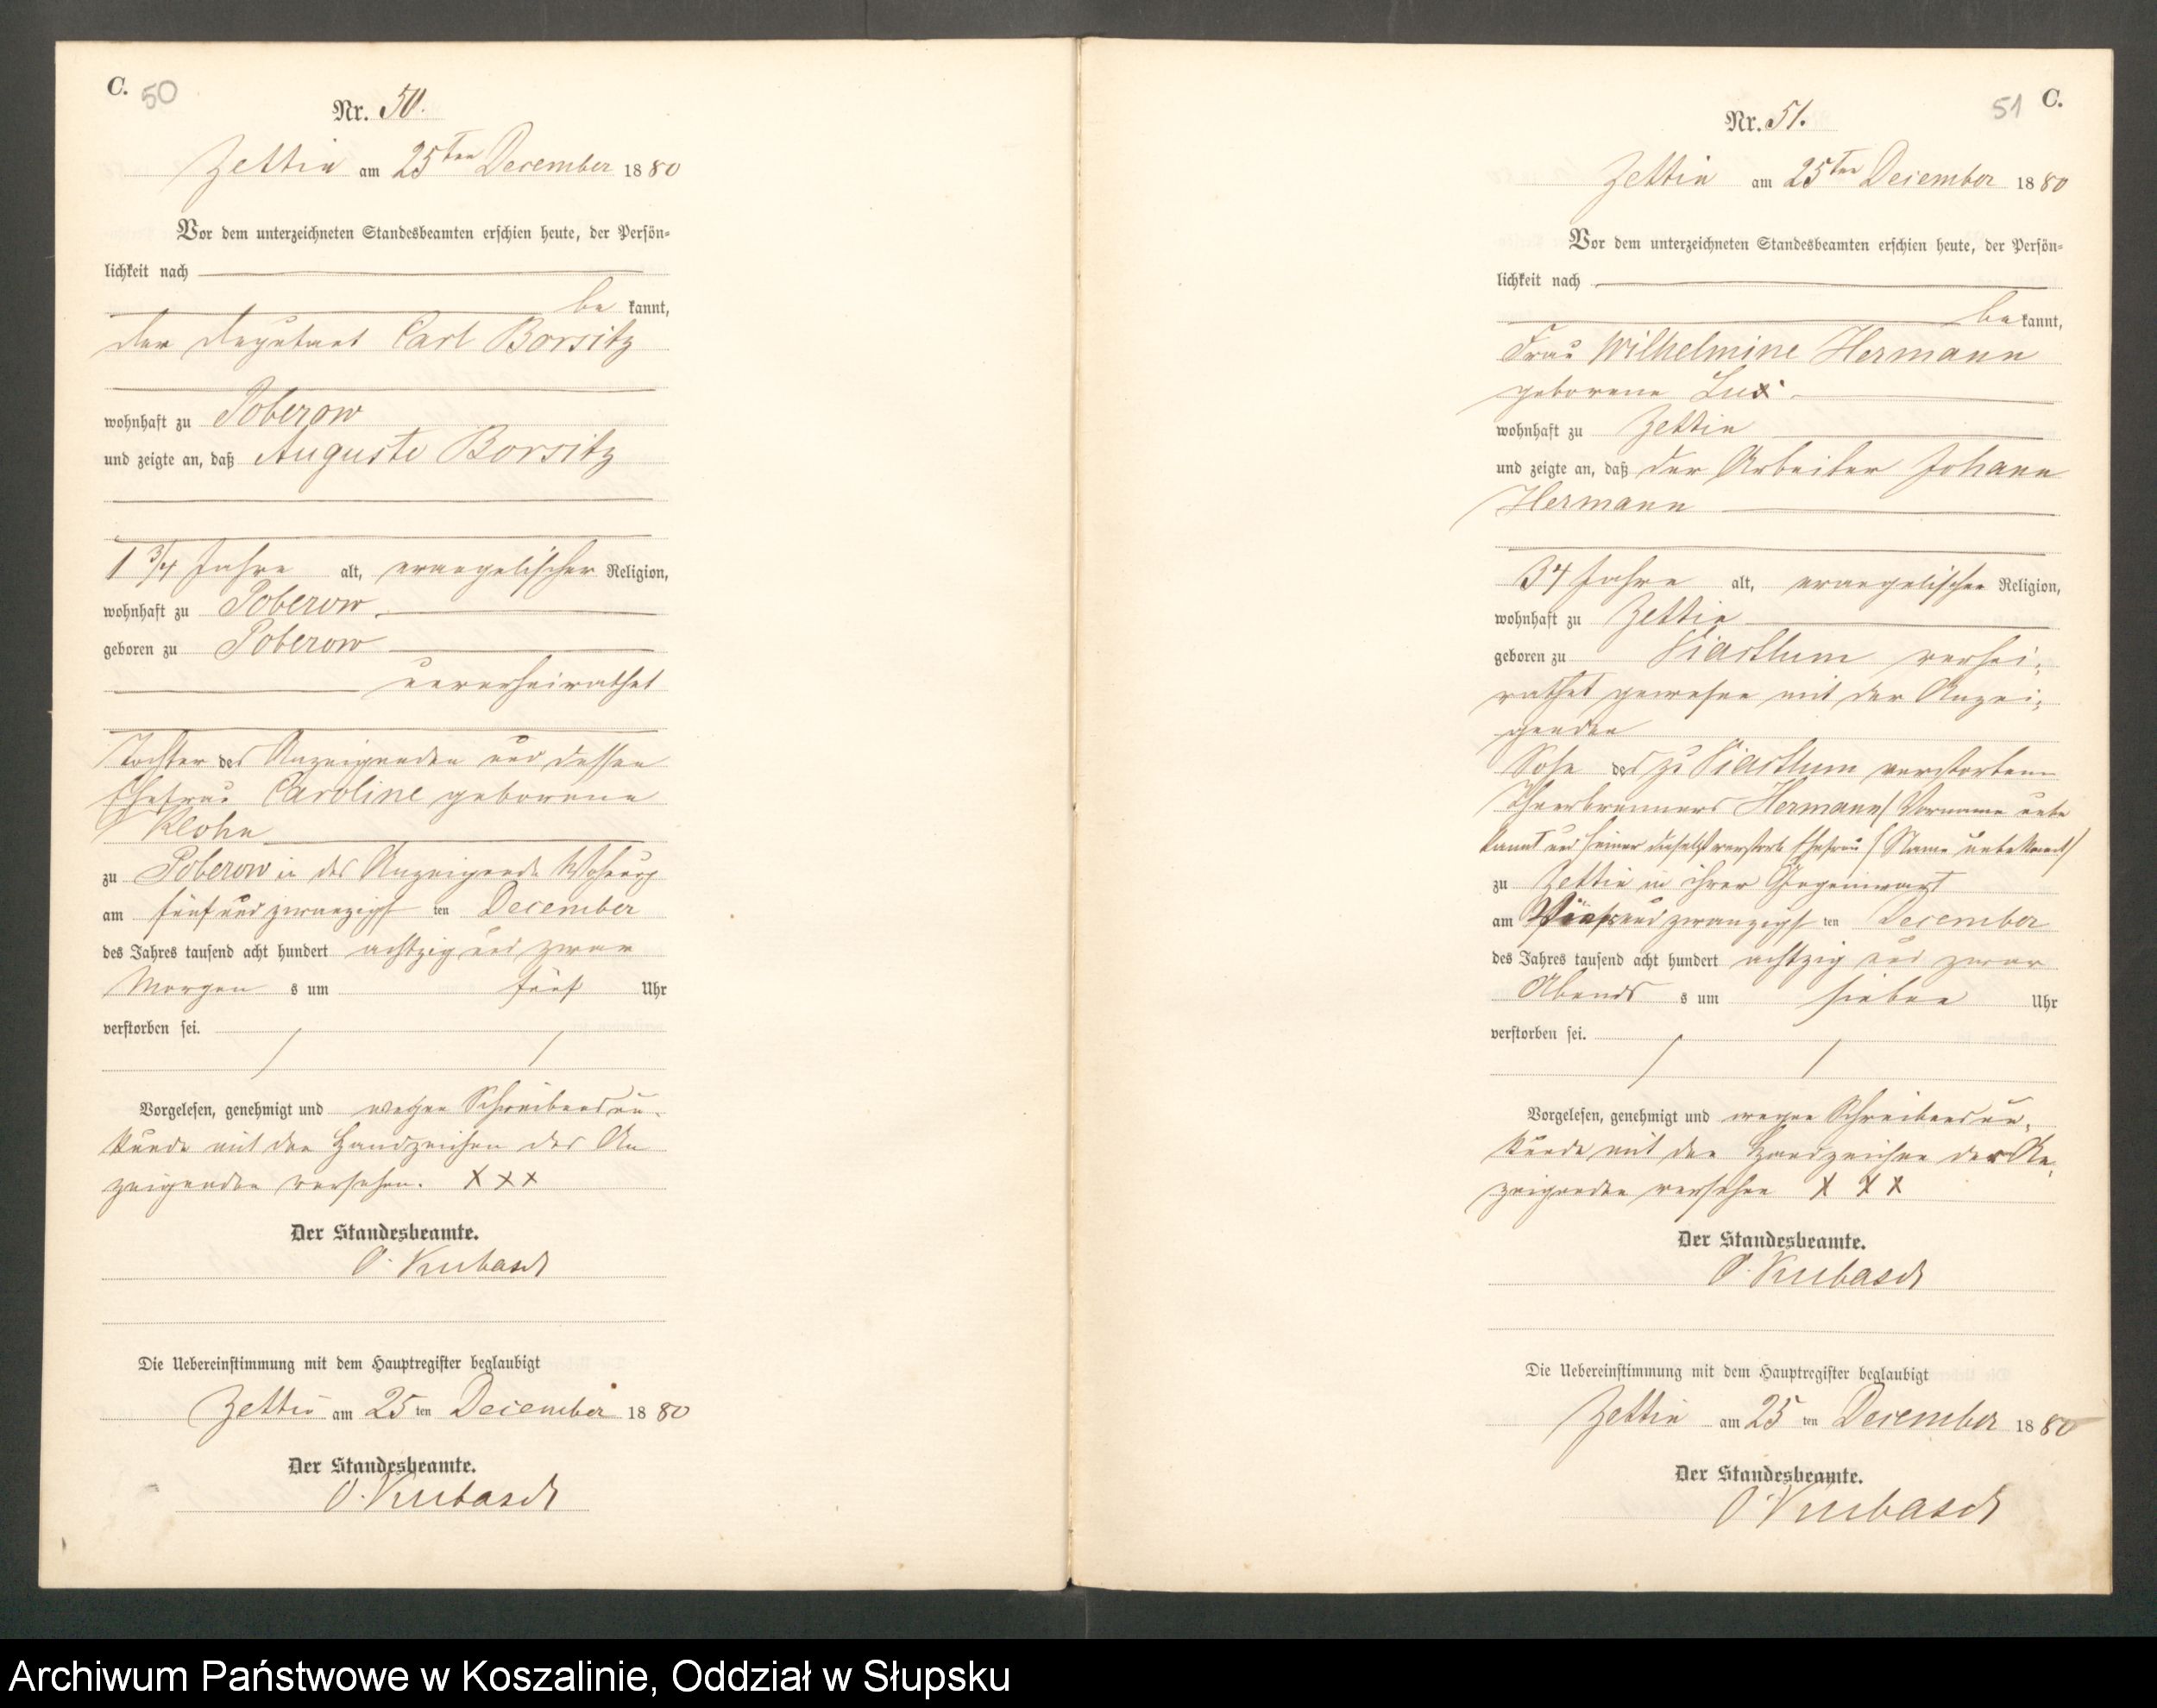 C. 50
Nr. 50.
Zettin am 25ten December 1880
Vor dem unterzeichneten Standesbeamten erschien heute, der Persön-
lichkeit nach
be kannt,
der Deputant Carl Borsitz
wohnhaft zu Poberow
und zeigte an, daß Auguste Borsitz
1 3/4 Jahre alt, evangelischer Religion,
wohnhaft zu Poberow.
geboren zu Poberow
unverheirathet
Tochter des Anzeigenden und dessen
Ehefrau Caroline geborene
Klohn
zu Poberow in des Anzeigende Wohnung
am fünf und zwanzigst ten December
des Jahres tausend acht hundert achtzig und zwar
Morgen s um fünf Uhr
verstorben sei.
Vorgelesen, genehmigt und wegen Schreibensun-
kunde mit den Handzeichen des An
zeigenden versehen. XXX
Der Standesbeamte.
O. Kubasch
Die Uebereinstimmung mit dem Hauptregister beglaubigt
Zettin am 25 ten December 1880
Der Standesbeamte.
O. Kubasch
51 C.
Nr. 51.
Zettin am 25ten December 1880
Vor dem unterzeichneten Standesbeamten erschien heute, der Persön-
lichkeit nach
be kannt,
Frau Wilhelmine Hermann
geborene Lux
wohnhaft zu Zettin
und zeigte an, daß der Arbeiter Johann
Hermann
34 Jahre alt, evangelischen Religion,
wohnhaft zu Zettin
geboren zu Viartlum verhei-
rathet gewesen mit der Anzei-
genden
Sohn des zu Viartlum verstorbene
Theerbrenners Hermann (Vorname unbe
kannt und seiner daselbst verstorb Ehefrau (Name unbekannt)
zu Zettin in ihrer Gegenwart
am fünf und zwanzigst ten December
des Jahres tausend acht hundert achtzig und zwar
Abends s um sieben Uhr
verstorben sei.
Vorgelesen, genehmigt und wegen Schreibensun-
kunde mit den Handzeichen der An-
zeigenden versehen X X X
Der Standesbeamte.
O. Kubasch
Die Uebereinstimmung mit dem Hauptregister beglaubigt
Zettin am 25 ten December 1880
Der Standesbeamte.
O. Kubasch
Archiwum Państwowe w Koszalinie, Oddział w Słupsku